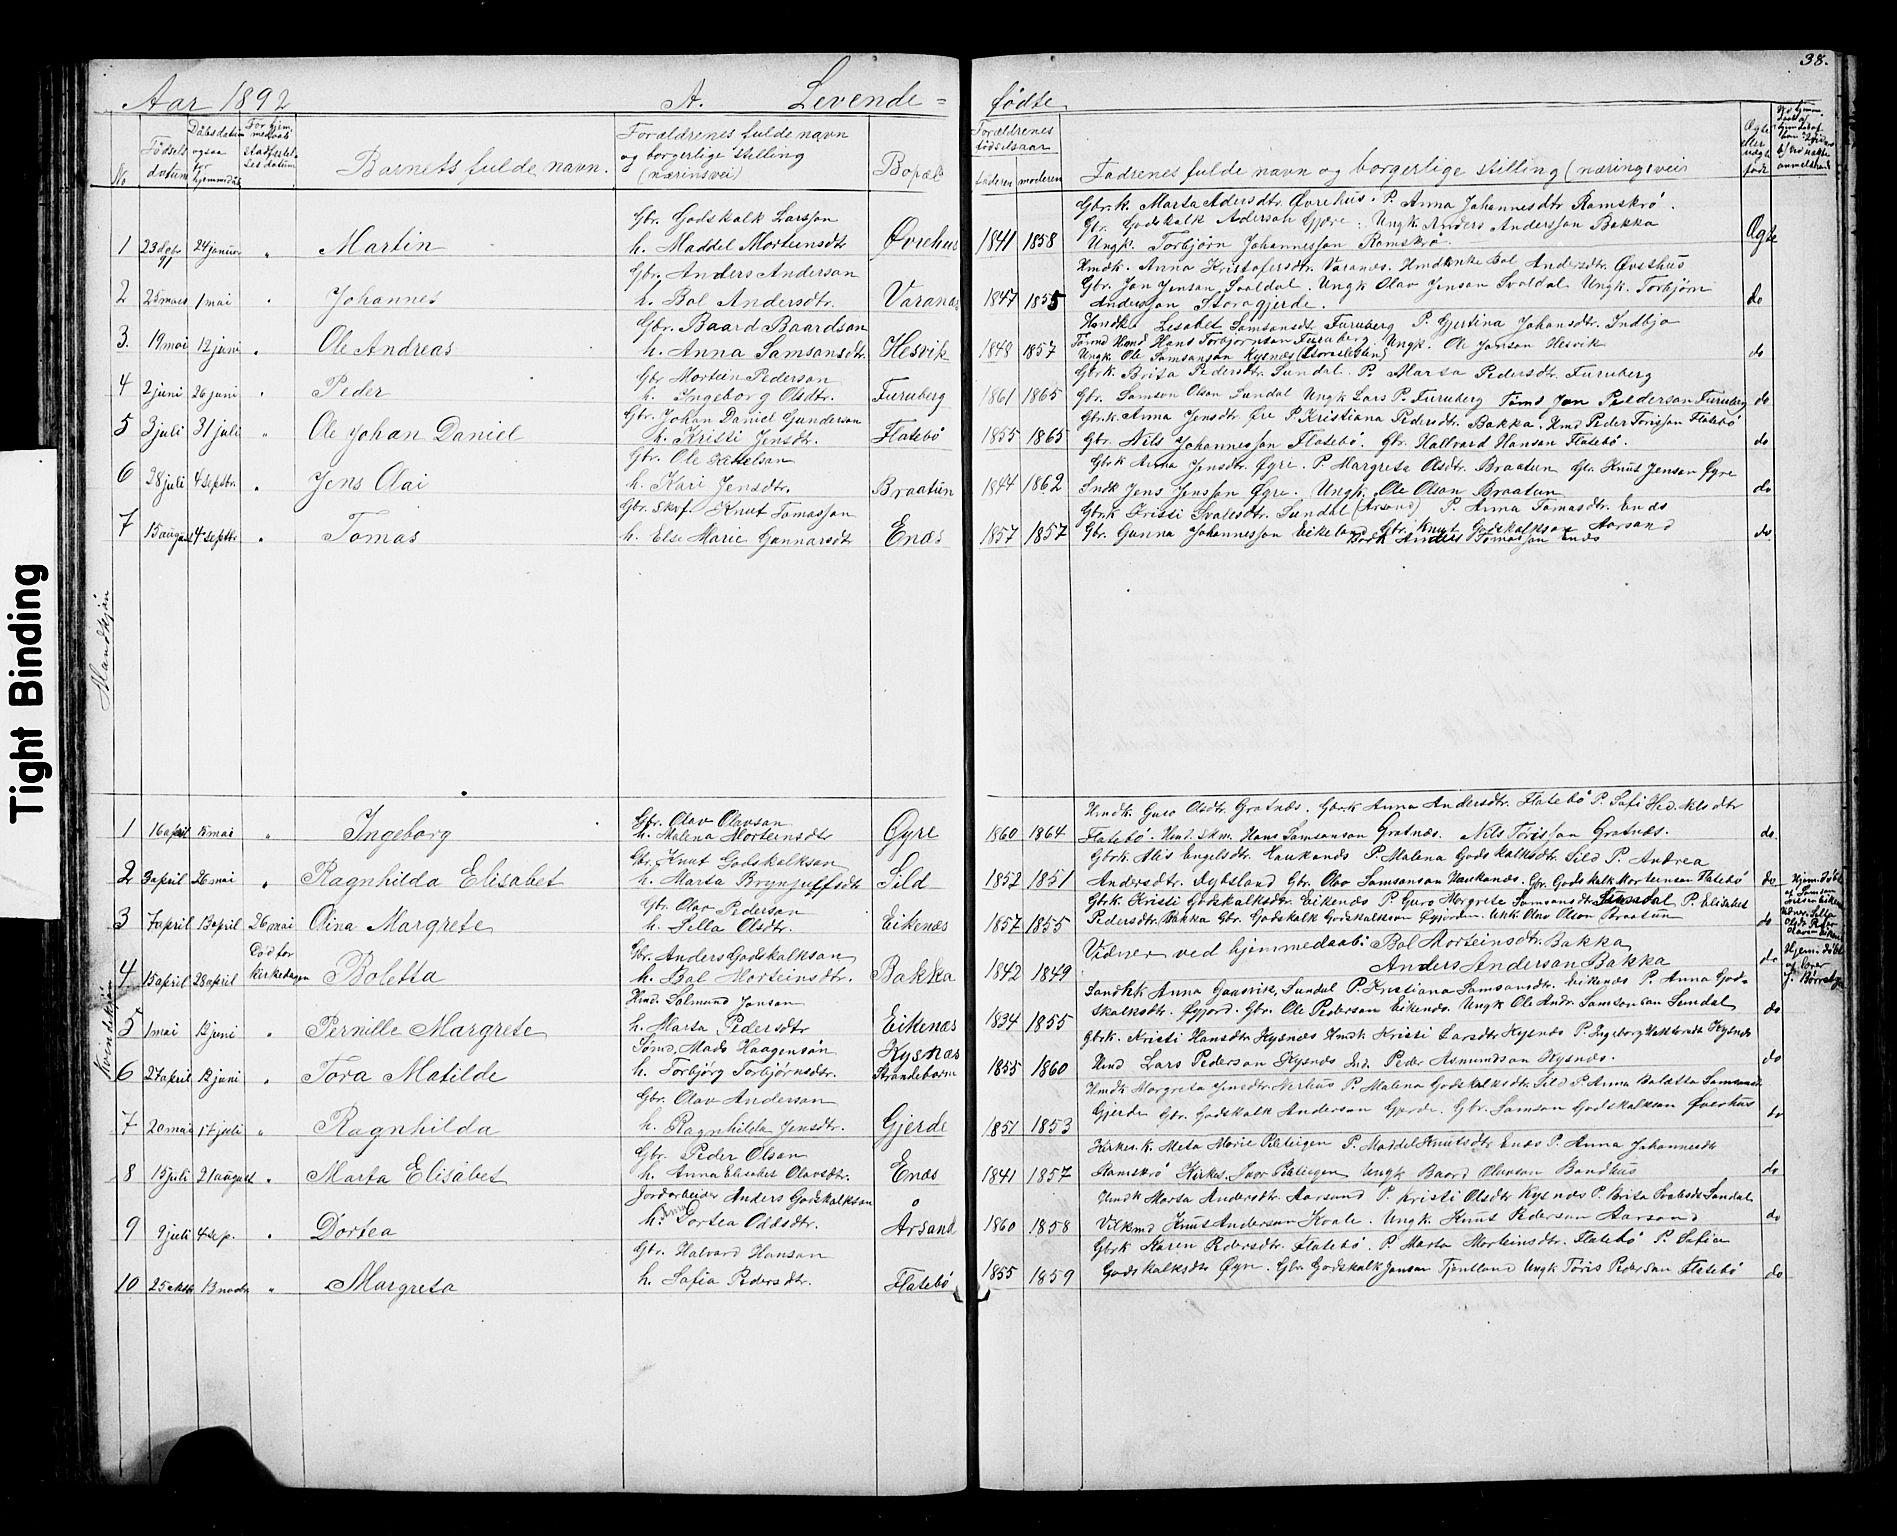 38.
Aar 1892 A. Levende = fødte
No
Fødsels datum
Daabsdatum ogsaa for hjemmedåb
For hjemmedøbt stadfestelsesdatum
Barnets fulde navn.
Forældrenes fulde navn og borgerlige stilling (nærinsvei)
Bopæl
Forældrenes fødselsaar
faderen moderen
Fadrenes fulde navn og borgerlige stilling (næringsvei
Ægte eller uægte født
Tight Binding
Mandkjön
1 23 dcbr 91 24 januar " Martin
Gbr. Godskalk Larsson
h. Maddel Morteinsdtr
Øvrehus 1841 1858
Gbr. k. Marta Adersdtr Øvrehus. P. Anna Johannesdtr Ramskrö.
Gbr. Godskalk Aderson Gjære. Ungk Anders Andersson Bakka
Ungk. Torbjørn Johannesson Ramskrø.
Ægte
2 25 mars 1 mai " Johannes
Gbr. Anders Anderson
h. Bol Andersdtr.
Varanæs 1847 1855
Hmdk. Anna Kristofersdtr. Varanæs. Hmdenke Bol Andersdtr. Øvsthus
Gbr. Jon Jenson Svaldal. Ungk Olav Jenson Svaldal Ungk. Torbjørn
Anderson Storagjerde.
do
3. 19 mai 12 juni " Ole Andreas
Gbr. Baard Baardson
h. Anna Samsonsdtr.
Hesvik 1848 1857
Hmdk. Lisabet Samsonsdt Furuberg P. Gjertina Johansdtr. Indbjo
Hmd Hans Torbjørnson Furuberg. Ungk. Ole Jonson Hesvik
Ungk Ole Samsonson Kysnæs
do
4 2 juni 26 juni " Peder
Gbr Mortein Pederson
h. Ingeborg Olsdtr.
Furuberg 1861 1865
Gbrk. Brita Pedersdtr. Sundal. P. Marta Pedersdtr. Furuberg
Gbr. Samson Olson Sundal Ungk Lars P. Furuberg Tømd Jon Pederson Furuberg
do
5 3 juli 31 juli " Ole Johan Daniel
Gbr. Johan Daniel Gunderson
h. Kristi Jensdtr.
Flatebö 1855 1865
Gbr.k. Anna Jensdtr. Øre P Kristiana Pedersdtr. Bakka. Hmd Peder Torisson Flatebö
Gbr. Nils Johannesson Flatebö. Gbr. Hallvard Hanson Flatebö.
do
6 28 juli 4 septbr. " Jens Olai
Gbr. Ole Kittelson
h. Kari Jensdtr.
Braatun 1844 1862
Gbrk Anna Jensdtr. Øyre. P. Margreta Olsdtr. Braatun Gbr. Knut Jenson Øyre
Indk Jens Jensson Øyre. Ungk. Ole Olson Braatun
do
7 15 august 4 septbr " Tomas
Gbr. Skrf. Knut Tomasson
h. Else Marie Gunnarsdtr
Enæs 1857 1857
Gbrk Kristi Ivalesdtr. Sundal (Årsand) P. Anna Tomasdtr. Enæs
Gbr. Gunna Johannesson Eikeland Gbr. Knut Godskalkson Aarsand
Anders Tomasson Enæs
do
Kvindekjön
1 16 april mai " Ingeborg
Gbr. Olav Olavson
h. Malena Morteinsdtr
Øyre 1860 1864
Hmdk Guro Olsdtr. Gratnæs. Gbr.k Anna Andersdtr. Flatebö P. Safi
Flatebö. Hmd. Skm. Hans Samsonson Gratnæs. Nils Torisson Gratnæs.
do.
2 3 april 26 mai " Ragnhilda Elisabet
Gbr. Knut Godskalkson
h. Marta Brynjulfsdtr
Sild 1852 1851
Gbrk. Alis Engelsdtr. Haukanæs P. Malena Godskalksdtr. Sild P. Andrea
Andersdtr. Dybsland Gbr. Olav Samsonson Haukanæs. Gbr. Godskalk Morteinson Flatebö
do
3 7 april 13 april 26 mai Oina Margrete
Gbr. Olav Pederson
h. Sella Olsdtr.
Eikenæs 1857 1855
Gbr.k. Kristi Godskalksdtr. Eikenæs P. Guro Margrete Samsonsdtr. Sundal P. Elisabet
Pedersdtr. Bakka Gbr. Godskalk Godskalkson Øyjorden. Ungk Olav Olson Braatun
do
Hjem. døbt
4 15 april 28 april Død for kirkedagen Boletta
Gbr. Anders Godskalkson
h. Bol Morteinsdtr.
Bakka 1842 1849
Vidner ved hjemmedaab: Bol Morteinsdtr. Bakka
Anders Anderson Bakka
do
Hjem. døbt af lærer
5 1 mai juni " Pernille Margrete
Hmd. Salmund Jonson
h. Marta Pedersdtr
Eikenæs 1834 1855
Anna Gaasvik, Sundal P. Kristiana Samsonsdtr. Eikenæs P. Anna God=
skalksdtr. Øyjord. Gbr. Ole Pederson Eikenæs. Ungk Ole Andr. Samsonson Sundal
do
6 27 april juni " Tora Matilde
Tømd. Mads Haagenson
h. Torbjørg Torbjørnsdtr.
Kysnæs Strandebarm 1855 1860
Gbrk. Kristi Hansdtr Kysnæs Hmdk Kristi Larsdtr Kysnæs P. Ingeborg Kysnæs
Hmd Lars Pederson Kysnæs Ind. Peder Asmundson Kysnæs.
do
7 20 mai 17 juli " Ragnhilda
Gbr. Olav Anderson
h. Ragnhilda Jensdtr.
Gjerde 1851 1853
Hmdk Margreta Jensdtr. Nerhus P. Malena Godskalksdtr Sild P Anna Boletta Samsonsd.
Gjerde Gbr. Godskalk Anderson Gjerde. Gbr. Samson Godskalkson Øverhus
do
8 15 juli 21 august " Marta Elisabet
Gbr. Peder Olson
h. Anna Elisabet Olavsdtr.
Enæs 1841 1857
Kirkes. k. Meta Marie Pilteigen P. Maddel Knutsdtr. Enæs P. Anna Johannesdtr
Ramskrö Kirkes. Ivar Pilteigen Ungk Baard Olavson Bondhus
do
9 9 juli 4 sep. " Dortea
Jordarbeider Anders Godskalkson
h. Dortea Oddsdtr.
Årsand 1860 1858
Hmdk Marta Andersdtr. Aarsand P. Kristi Olsdtr Kysnæs P. Brita Svalesdt Sundal
Knut Anderson Kvale. Ungk. Knut Pederson Aarsand
do
10 25 oktbr 13 novbr " Margreta
Gbr. Halvard Hanson
h. Safia Pedersdtr.
Flatebö 1855 1859
Gbrk Karen Pedersdtr. Flatebö. P. Marta Morteinsdtr. Flatebö P. Safia
Godskalksdtr Øyre. Gbr. Godskalk Jonson Tjontland Ungk Toris Pederson Flatebö
do